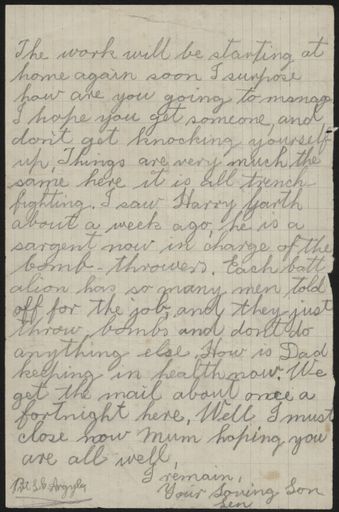 The work will be starting at
home again soon I surpose
how are you going to manage
I hope you get someone, and
don't get knocking yourself
up, Things are very much the
same here it is all trench
fighting. I saw Harry Garth
about a week ago, he is a
sargent now in charge of the
bomb-throwers. Each batt-
alion has so many men told
off for the job, and they just
throw bombs and dont do
anything else, How is Dad
keeping in health now. We
get the mail about once a
fortnight here, Well I must
close now Mum hoping you
are all well
I remain,
Your Loving Son
Len